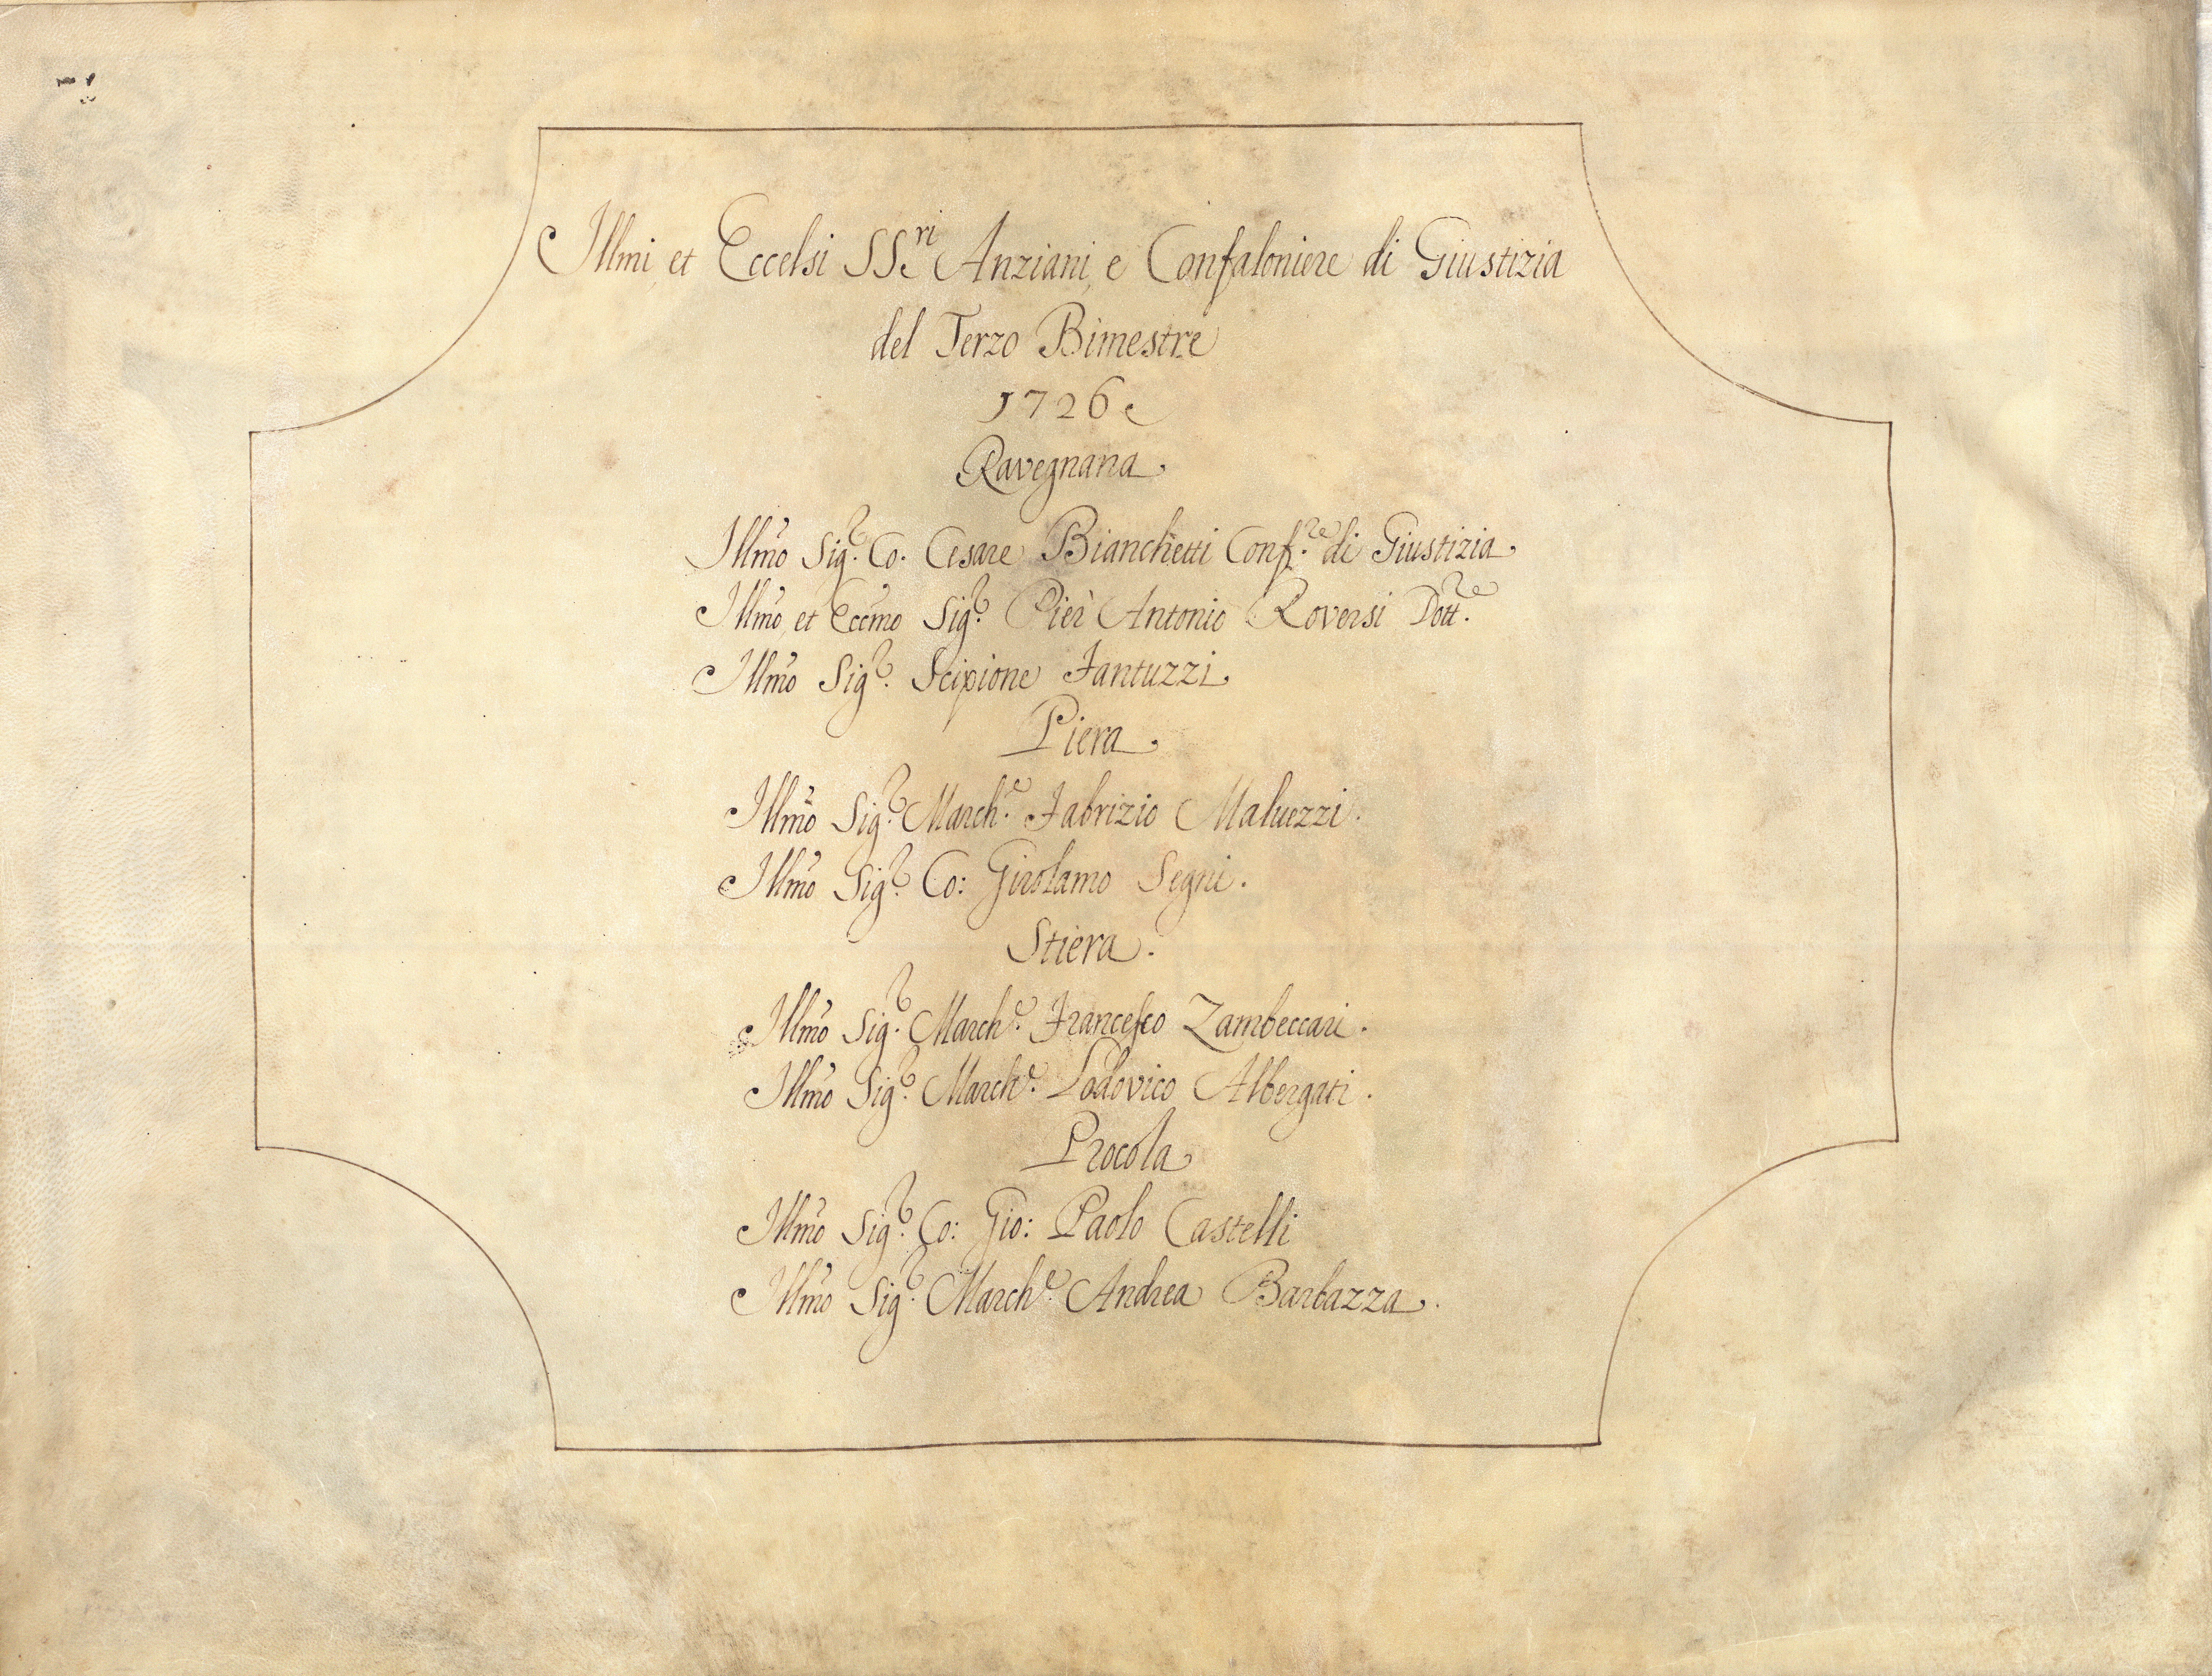 Illmi, et Eccelsi SS.ri Anziani, e Confaloniere di Giustizia
del Terzo Bimestre
1726
Ravegnana.
Illmo Sig.r Co. Cesare Bianchetti Conf.re di Giustizia.
Illmo, et Eccmo Sig.r Pier Antonio Roversi Dott.re
Illmo Sig.r Scipione Fantuzzi.
Piera.
Illmo Sig.r March.e Fabrizio Maluezzi.
Illmo Sig.r Co: Girolamo Segni.
Stiera.
Illmo Sig.r March.e Francesco Zambeccari.
Illmo Sig.r March.e Lodovico Albergati.
Procola
Illmo Sig.r Co: Gio: Paolo Castelli
Illmo Sig.r March.e Andrea Barbazza.